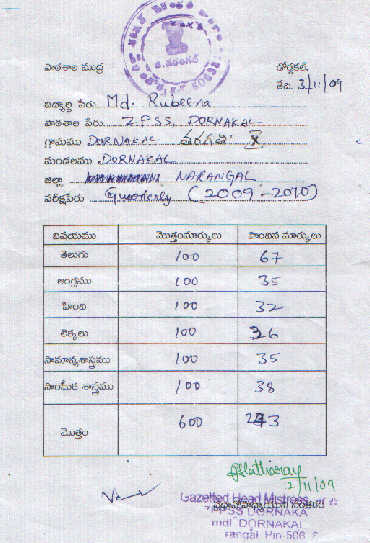 పాఠశాల ముద్ర
డోర్నకల్
తేది. 3/11/09
విద్యార్థి పేరు Md. Rubeena
పాఠశాల పేరు Z.P.S.S, DORNAKAL
గ్రామము DORNAKAL తరగతి X
మండలము DORNAKAL
జిల్లా WARANGAL
పరీక్షపేరు Quarterly (2009-2010)
విషయము మొత్తంమార్కులు పొందిన మార్కులు
తెలుగు 100 67
ఆంగ్లము 100 35
హింది 100 32
లెక్కలు 100 36
సామాన్యశాస్త్రము 100 35
సాంఘీక శాస్త్రము 100 38
మొత్తం 600 243
2/11/09
Gazetted Head Mistress
ZPSS DORNAKA
mdl DORNAKAL
rangal Pin-506